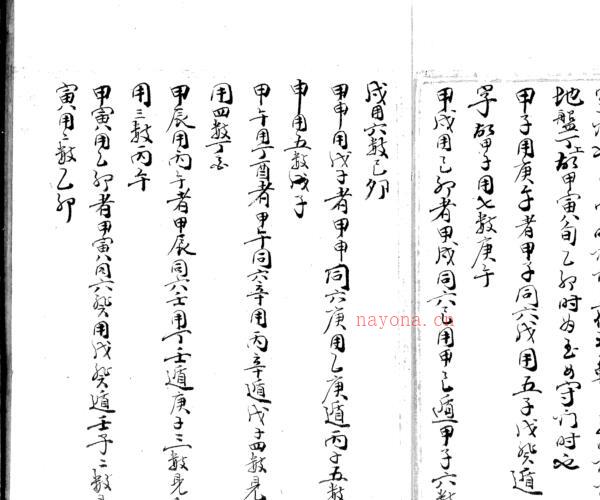 地盤丁故甲寅旬乙卯時為玉女守门时也
甲子用庚午者甲子同六戊用五子戊癸遁
字故甲子用七数庚午
甲戌用己卯者甲戌同六己用甲己遁甲子六数
戌用六数己卯
甲申用戊子者甲申同六庚用乙庚遁丙子五数
申用五数戊子
甲午用丁酉者甲午同六辛用丙辛遁戊子四数見
用四数丁酉
甲辰用丙午者甲辰同六壬用丁壬遁庚子三数見
用三数丙午
甲寅用乙卯者甲寅同六癸用戊癸遁壬子二数見
寅用二数乙卯
nayona.cn